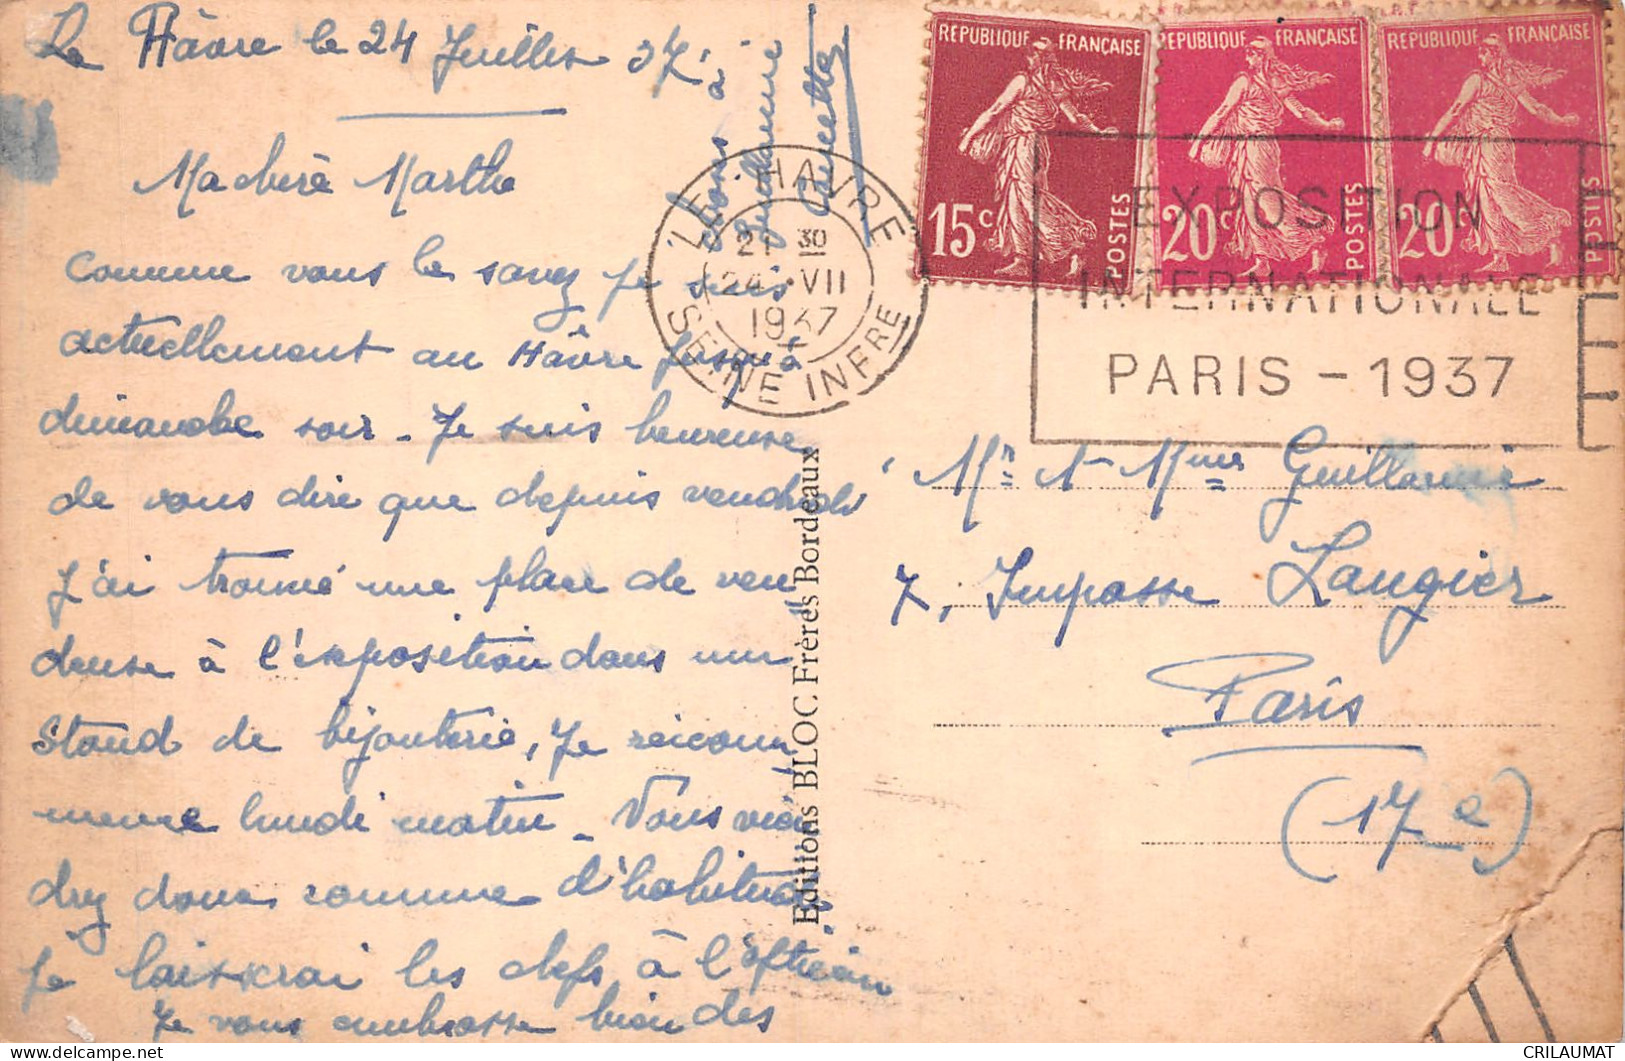 Le Hâvre le 24 Juillet 37
Ma chère Marthe
Comme vous le savez je suis
actuellement au Hâvre jusqu'à
dimanche soir - Je suis heureuse
de vous dire que depuis vendredi
j'ai trouvé une place de ven
deuse à l'exposition dans un
stand de bijouterie, je recom
mence lundi matin - Vous vien
drez donc comme d'habitude
je laisserai les clefs à l'opticien
Je vous embrasse bien des
à
Guillaume
Lucette
REPUBLIQUE FRANÇAISE
15c
POSTES
REPUBLIQUE FRANÇAISE
20c
POSTES
REPUBLIQUE FRANÇAISE
20c
POSTES
LE HAVRE
21 30
24 · VII
1937
SEINE INFRE
EXPOSITION
INTERNATIONALE
PARIS - 1937
Editions BLOC. Frères Bordeaux
Mr & Mmes Guillaume
7, Impasse Laugier
Paris
(17 e)
CRILAUMAT